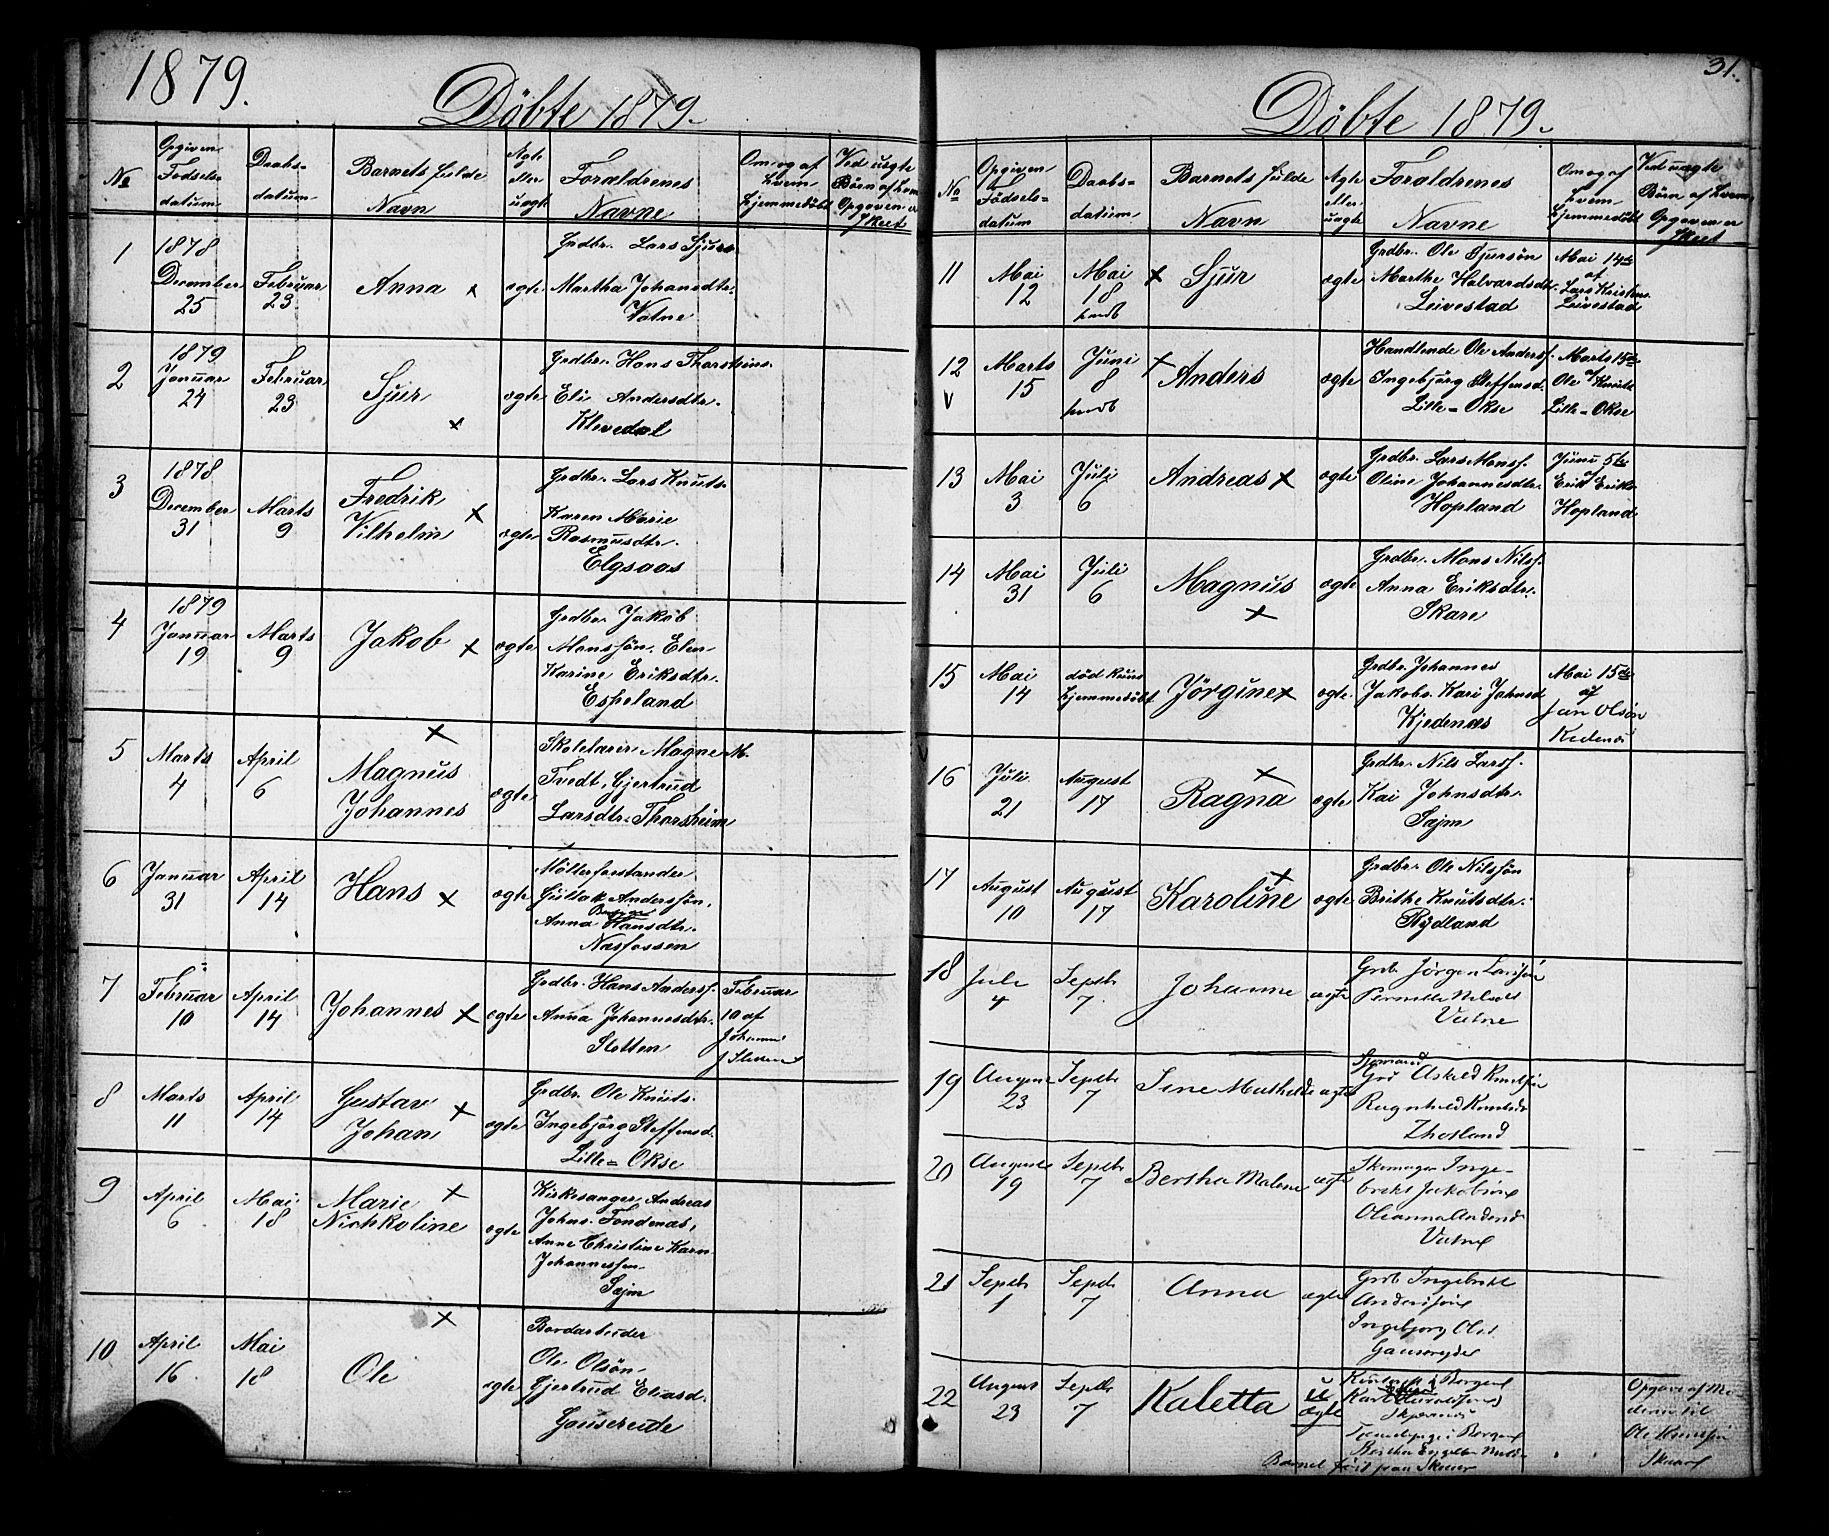 1879.
Döbte 1879.
No
Opgiven Fødsels datum
Daabs- datum
Barnets fulde Navn
Ægte eller uægte
Forældrenes Navne
Om og af hvem hjemmedöbt
Ved uægte Börn af hvem Opgaven er skeet
1
1878 December 25
Februar 23
Anna
ægte
Grdbr. Lars Sjurs.
Martha Johansdtr.
Vatne
2
1879 Januar 24
Februar 23
Sjur
ægte
Grdbr. Hans Thorsteins.
Eli Andersdtr.
Klevedal
3
1878 December 31
Marts 9
Fredrik Vilhelm
ægte
Grdbr. Lars Knuts.
Karen Marie
Rasmusdtr.
Elgsaas
4
1879 Januar 19
Marts 9
Jakob
ægte
Grdbr. Jakob
Monssön. Elen
Karine Eriksdtr.
Espeland
5
Marts 4
April 6
Magnus Johannes
ægte
Skolelærer Magne M.
Tvedt, Gjertrud
Larsdtr. Thorsheim
6
Januar 31
April 14
Hans
ægte
Möllerforstander
Gullak Anderssön,
Anna Hansdtr.
Næsfossen
7
Februar 10
April 14
Johannes
ægte
Grdbr. Hans Andersf.
Anna Johannesdtr.
Sletten
Februar
10 af
8
Marts 11
April 14
Gustav Johan
ægte
Grdbr. Ole Knuts.
Ingebjörg Steffensd.
Lille=Okse
9
April 6
Mai 18
Marie Nichkoline
ægte
Kirkesanger Andreas
Johns. Tondenæs,
Anne Christine Karn.
Johannessen
Sæjm
10
April 16
Mai 18
Ole
ægte
Bordarbeider
Ole Olsön
Gjertrud Eliasd.
Gausereide
31.
Döbte 1879.
No
Opgiven Födsels= datum
Daabs= datum
Barnets fulde Navn
Ægte eller uægte
Forældrenes Navne
Om og af hvem hjemmedöbt
Ved uægte Börn af hvem Opgaven er skeet
11
Mai 12
Mai 18
Sjur
ægte
Grdbr. Ole Sjursön
Marthe Halvardsdtr.
Leivestad
Mai 14de
af
Lars Kristens.
Leivestad
12
Marts 15
Juni 8
Anders
ægte
Handlende Ole Andersf.
Ingebjörg Steffensd.
Lille=Okse
Marts 15de
af
Ole Knuts
Lille=Okse
13
Mai 3
Juli 6
Andreas
ægte
Grdbr. Lars Monsf.
Oline Johannesdtr.
Hopland
Juni 5te
af
Erik Eriks.
Hopland
14
Mai 31
Juli 6
Magnus
ægte
Grdbr. Mons Nilsf.
Anna Eriksdtr.
Skare
15
Mai 14
död kuns hjemmedöbt
Jörgine
ægte
Grdbr. Johannes
Jakobs. Kari Johnsd
Kjedenæs
Mai 15de
af
Jan Olsön
16
Juli 21
August 17
Ragna
ægte
Grdbr. Nils Larsf.
Kai Johnsdtr.
Sæjm
17
August 10
August 17
Karoline
ægte
Grdbr. Ole Nilssön
Brithe Knutsdtr.
Rydland
18
Juli 4
Septb 7
Johanne
ægte
Grdb. Jörgen Larssön
Pernille
Vatne
19
August 23
Septb 7
Sine Mathilde
ægte
Sjömand
Askild Knutssön
Ragnhild Knutsdr
20
August 19
Septb 7
Bertha Malene
ægte
Skomager Inge-
brikt Jakobsen
Olianna Andersd
Vatne
21
Septb 1
Septb 7
Anna
ægte
Grdb Ingebrikt
Anderssön
Ingebjorg Olsd.
Gausereide
22
August 23
Septb 7
Kaletta
u
ægte
i Bergen
Tjenestepige i Bergen
Bertha
Opgave af
til